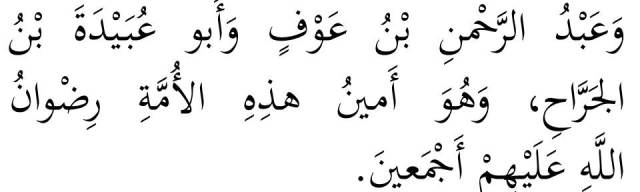 وَعَبْدُ الرَّحْمنِ بْنُ عَوْفٍ وَأَبو عُبَيْدَةَ بْنُ
الجَرَّاحِ، وَهُوَ أَمينُ هذِهِ الأُمَّةِ رِضْوانُ
اللَّهِ عَلَيْهِمْ أَجْمَعينَ.